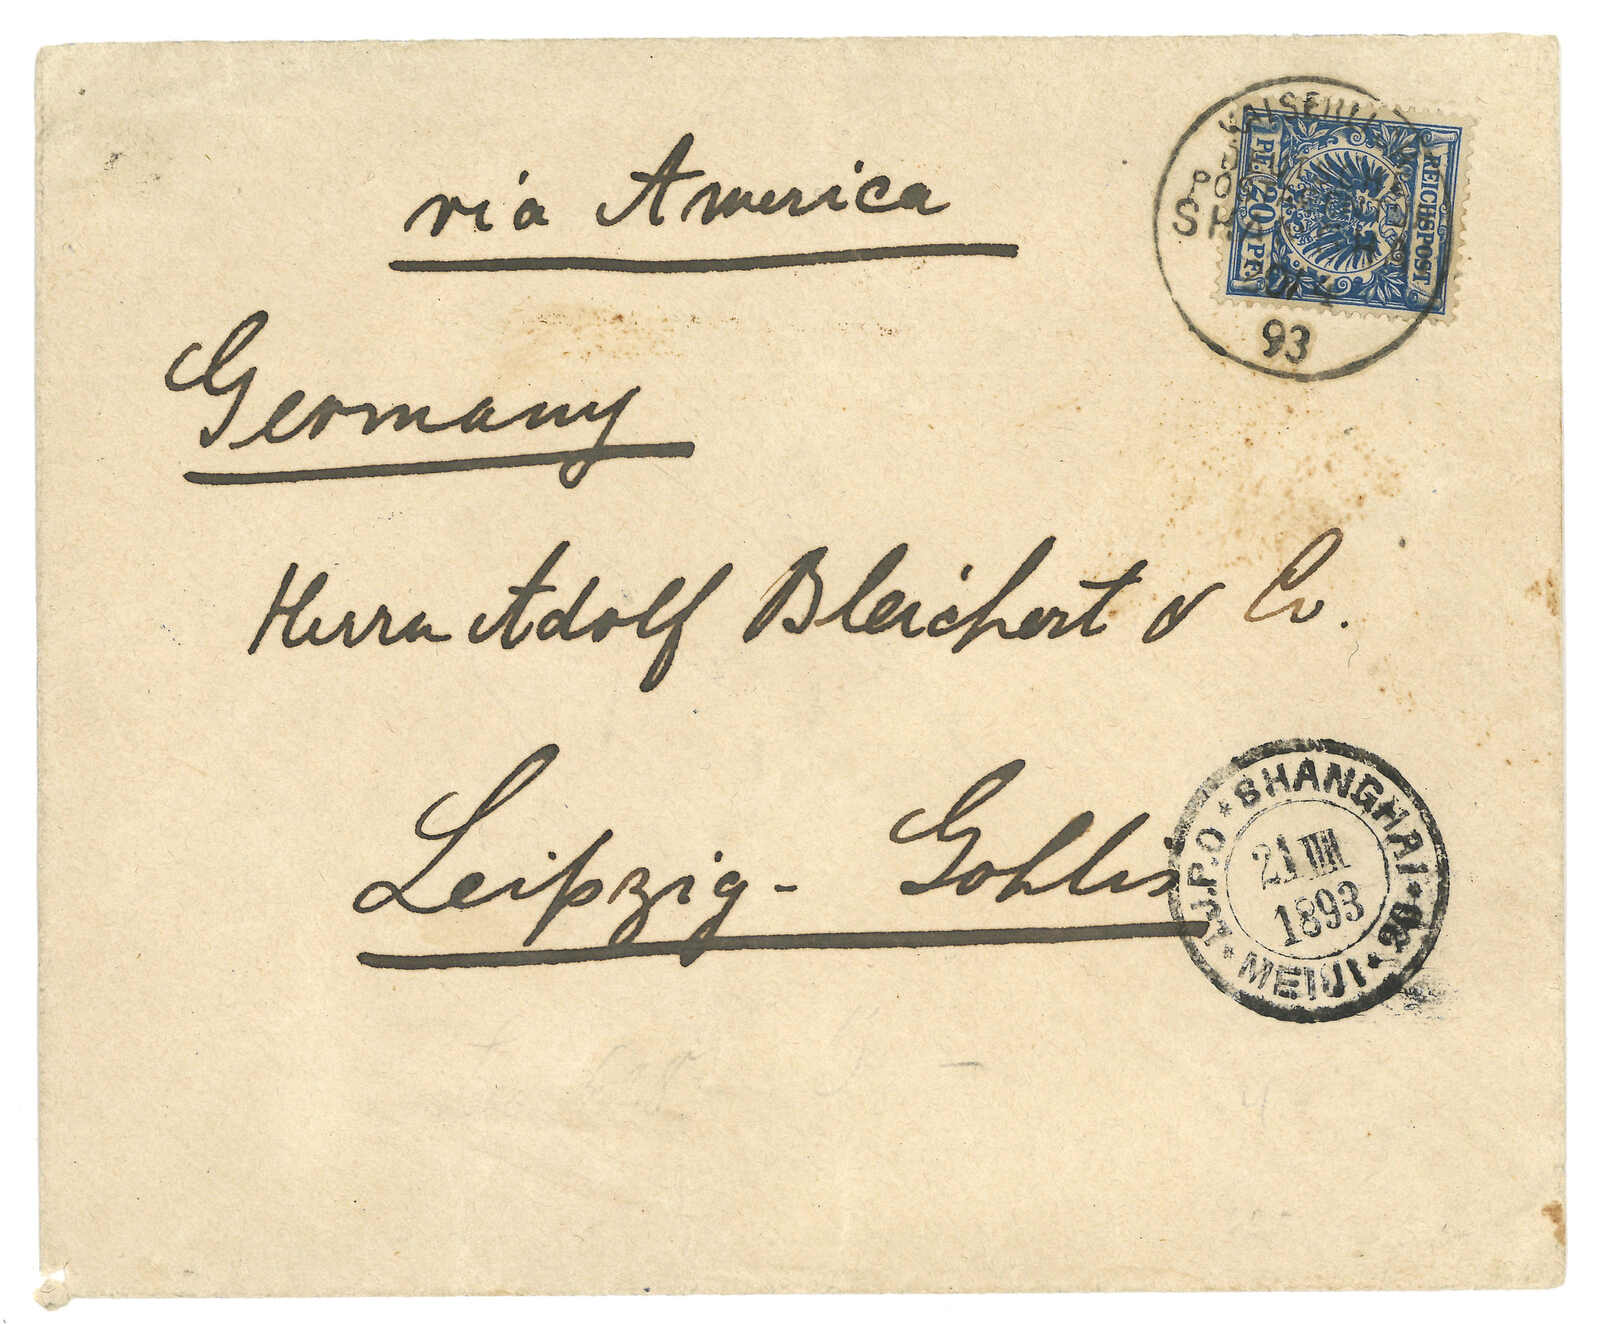 via America
Germany
Herrn Adolf Bleichert & Co.
Leipzig - Gohlis
REICHSPOST
20 PF. 20 PF.
93
SHANGHAI
I.J.P.O
21 III
1893
MEIJI